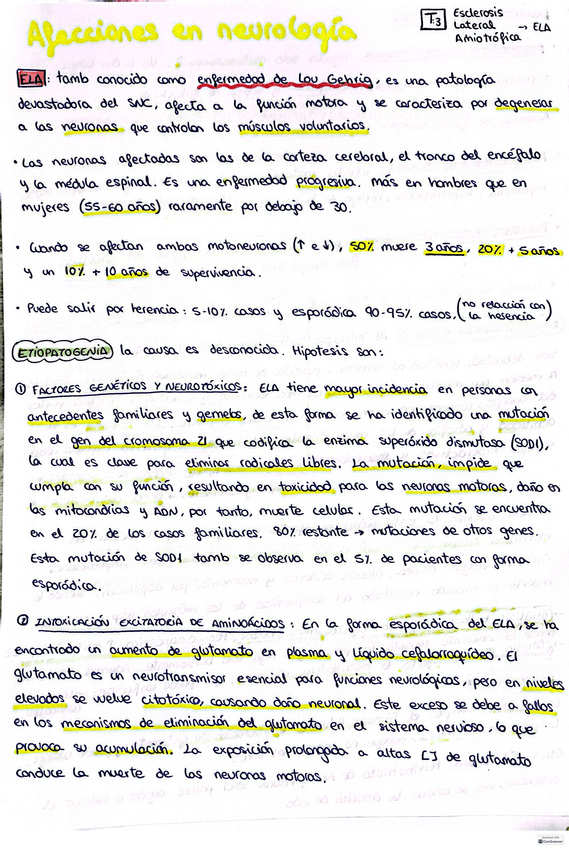 Afecciones en neurología
T.3 Esclerosis
Lateral → ELA
Amiotrófica
ELA: tamb conocido como enfermedad de Lou Gehrig, es una patología
devastadora del SNC, afecta a la función motora y se caracteriza por degenerar
a las neuronas que controlan los músculos voluntarios.
• Las neuronas afectadas son las de la corteza cerebral, el tronco del encéfalo
y la médula espinal. Es una enfermedad progresiva. más en hombres que en
mujeres (55-60 años) raramente por debajo de 30.
• Cuando se afectan ambas motoneuronas (↑ e ↓), 50% muere 3 años, 20% + 5 años
y un 10% + 10 años de supervivencia.
• Puede salir por herencia: 5-10% casos y esporádica 90-95% casos. (no relacción con
la herencia)
ETIOPATOGENIA la causa es desconocida. Hipotesis son:
① FACTORES GENÉTICOS Y NEUROTÓXICOS: ELA tiene mayor incidencia en personas con
antecedentes familiares y gemelos, de esta forma se ha identificado una mutación
en el gen del cromosoma 21 que codifica la enzima superóxido dismutasa (SOD1),
la cual es clave para eliminar radicales libres. La mutación, impide que
cumpla con su función, resultando en toxicidad para las neuronas motoras, daño en
las mitocondrias y ADN, por tanto, muerte celular. Esta mutación se encuentra
en el 20% de los casos familiares. 80% restante → mutaciones de otros genes.
Esta mutación de SOD1 tamb se observa en el 5% de pacientes con forma
esporádica.
② INTOXICACIÓN EXCITATORIA DE AMINOÁCIDOS: En la forma esporádica del ELA, se ha
encontrado un aumento de glutamato en plasma y líquido cefalorraquídeo. El
glutamato es un neurotransmisor esencial para funciones neurológicas, pero en niveles
elevados se vuelve citotóxico, causando daño neuronal. Este exceso se debe a fallos
en los mecanismos de eliminación del glutamato en el sistema nervioso, lo que
provoca su acumulación. La exposición prolongada a altas [] de glutamato
conduce la muerte de las neuronas motoras.
CamScanner